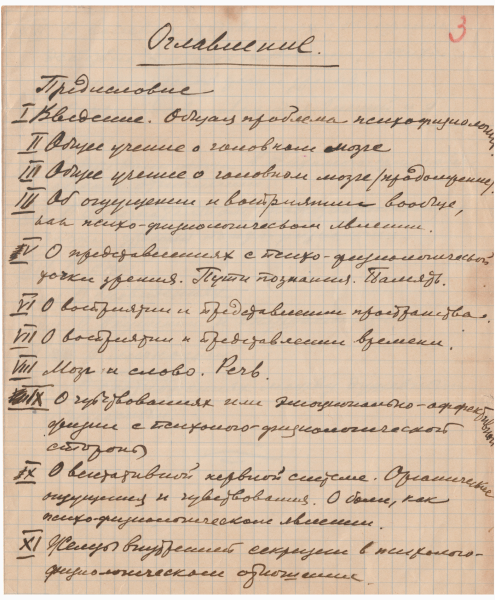 3
Оглавление.
Предисловие
I Введение. Общая проблема психофизиологии
II Общее учение о головном мозге
III Общее учение о головном мозге (продолжение)
IV Об ощущении и восприятии вообще,
как психо-физиологическом явлении.
V О представлениях с психо-физиологической
точки зрения. Пути познания. Память.
VI О восприятии и представлении пространства.
VII О восприятии и представлении времени.
VIII Мозг и слово. Речь.
IX О чувствованиях или эмоционально-аффективной
физии с психолого-физиологической
стороны
X О вегетативной нервной системе. Органические
ощущения и чувствования. О боли, как
психо-физиологическом явлении.
XI Железы внутренней секреции в психолого-
физиологическом отношении.